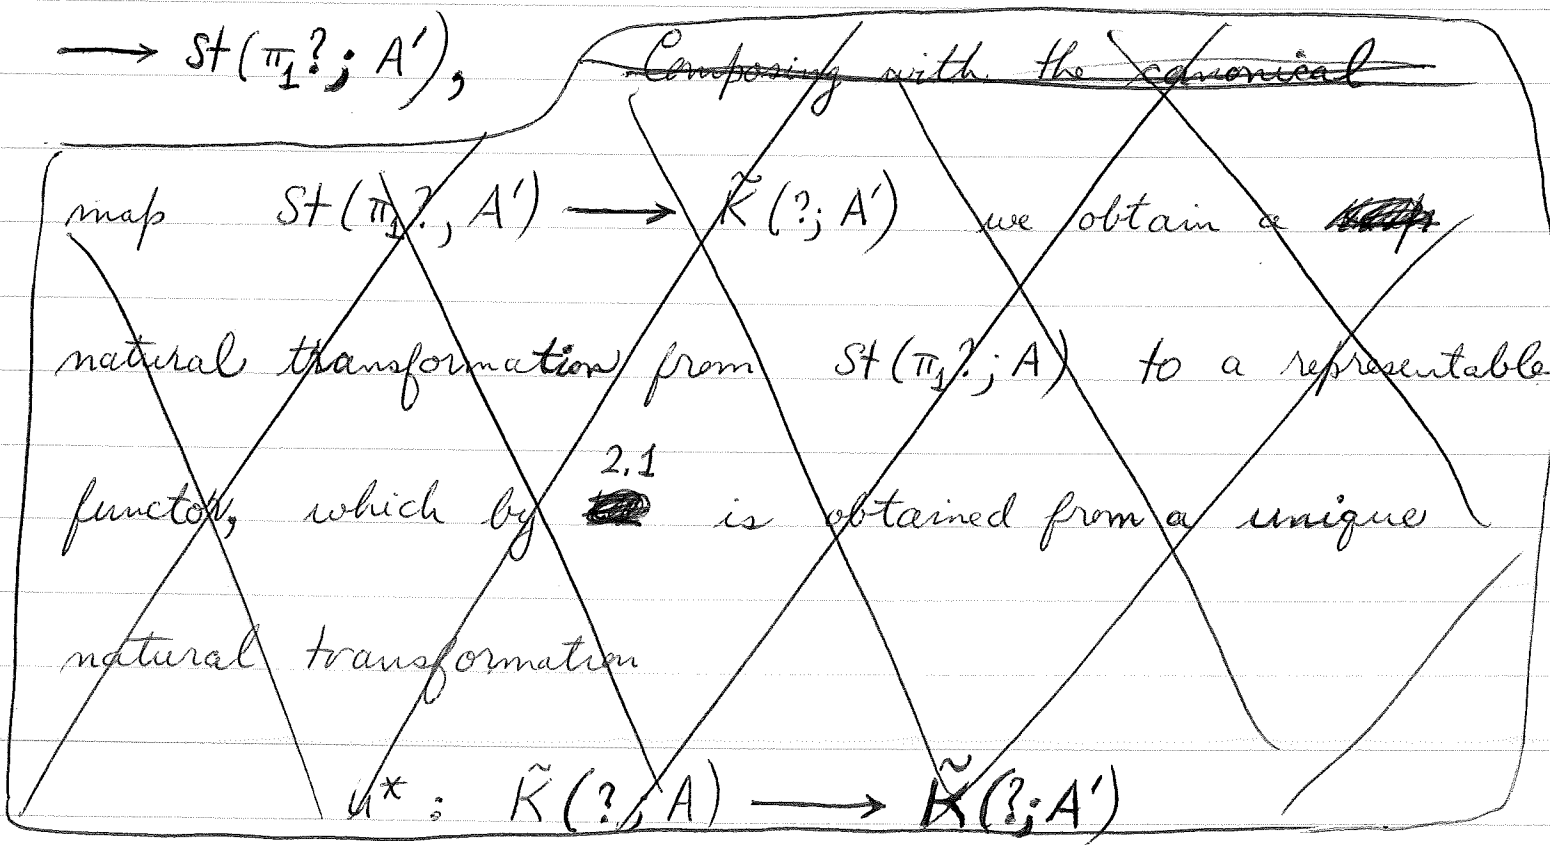 ⟶ St(π₁?; A′),  Composing with the canonical
map St(π₁?, A′) ⟶ K̃(?; A′) we obtain a
natural transformation from St(π₁?; A) to a representable
functor, which by 2.1 is obtained from a unique
natural transformation
u* : K̃(?; A) ⟶ K̃(?; A′)